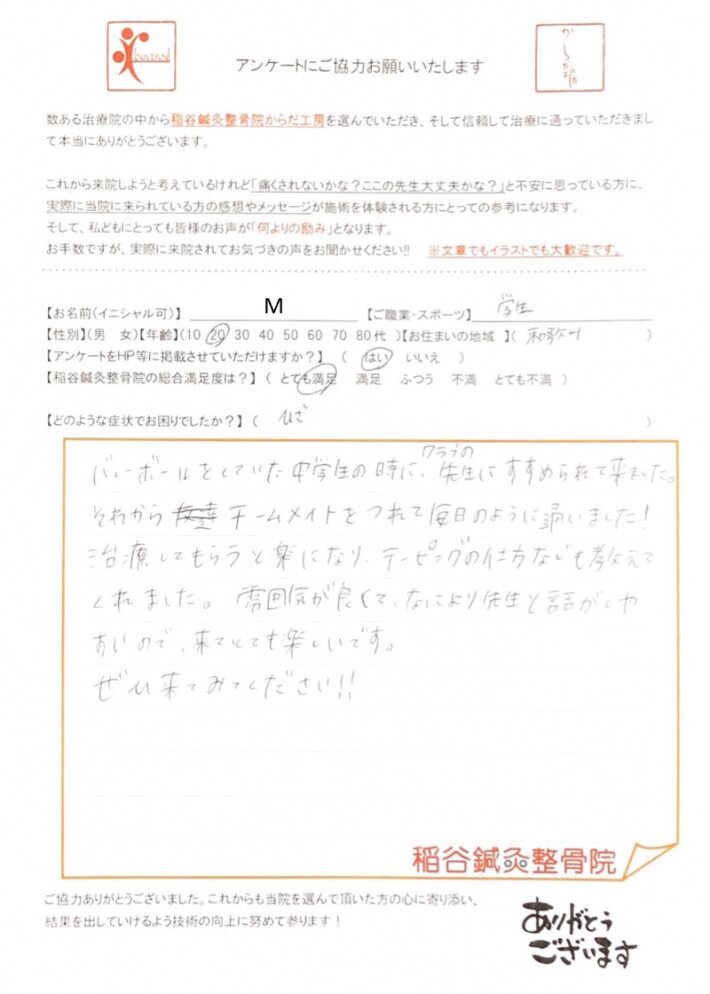 INATANI
からだ工房
アンケートにご協力お願いいたします
数ある治療院の中から稲谷鍼灸整骨院からだ工房を選んでいただき、そして信頼して治療に通っていただきまし
て本当にありがとうございます。
これから来院しようと考えているけれど「痛くされないかな？ここの先生大丈夫かな？」と不安に思っている方に、
実際に当院に来られている方の感想やメッセージが施術を体験される方にとっての参考になります。
そして、私どもにとっても皆様のお声が「何よりの励み」となります。
お手数ですが、実際に来院されてお気づきの声をお聞かせください!! ※文章でもイラストでも大歓迎です。
【お名前(イニシャル可)】 M 【ご職業・スポーツ】 学生
【性別】(男 女)【年齢】(10 20 30 40 50 60 70 80代 )【お住まいの地域 】( 和歌山 )
【アンケートをHP等に掲載させていただけますか？】 ( はい いいえ )
【稲谷鍼灸整骨院の総合満足度は？】 ( とても満足 満足 ふつう 不満 とても不満 )
【どのような症状でお困りでしたか？】( ひざ )
バレーボールをしていた中学生の時に、クラブの先生にすすめられて来ました。
それから 友達 チームメイトをつれて毎日のように通いました！
治療してもらうと楽になり、テーピングの仕方なども教えて
くれました。 雰囲気が良くて、なにより先生と話がしや
すいので、来ていても楽しいです。
ぜひ来てみてください!!
稲谷鍼灸整骨院
ご協力ありがとうございました。これからも当院を選んで頂いた方の心に寄り添い、
結果を出していけるよう技術の向上に努めて参ります！
ありがとう
ございます